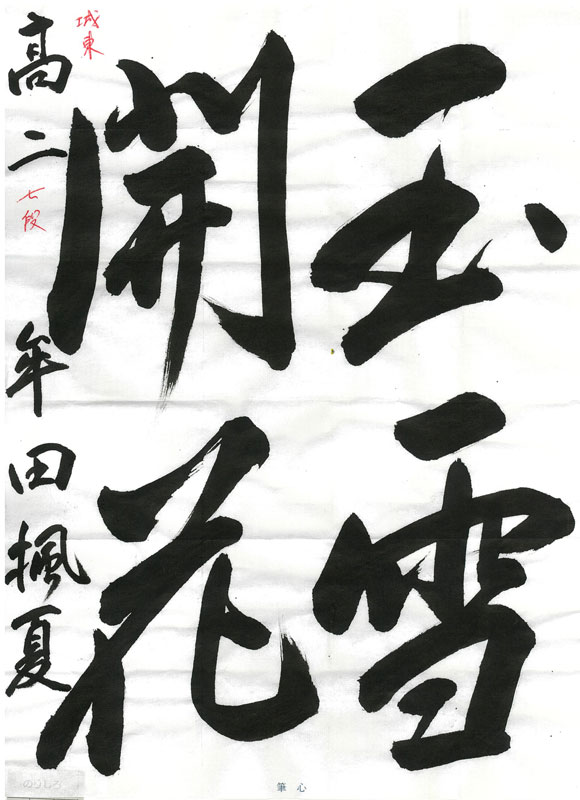 玉雪
開花
高二 牟田楓夏
城東
七段
のりしろ
筆心